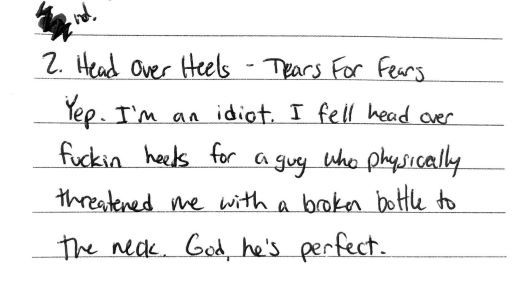 2. Head Over Heels - Tears For Fears
Yep. I'm an idiot. I fell head over
fuckin heels for a guy who physically
threatened me with a broken bottle to
the neck. God, he's perfect.